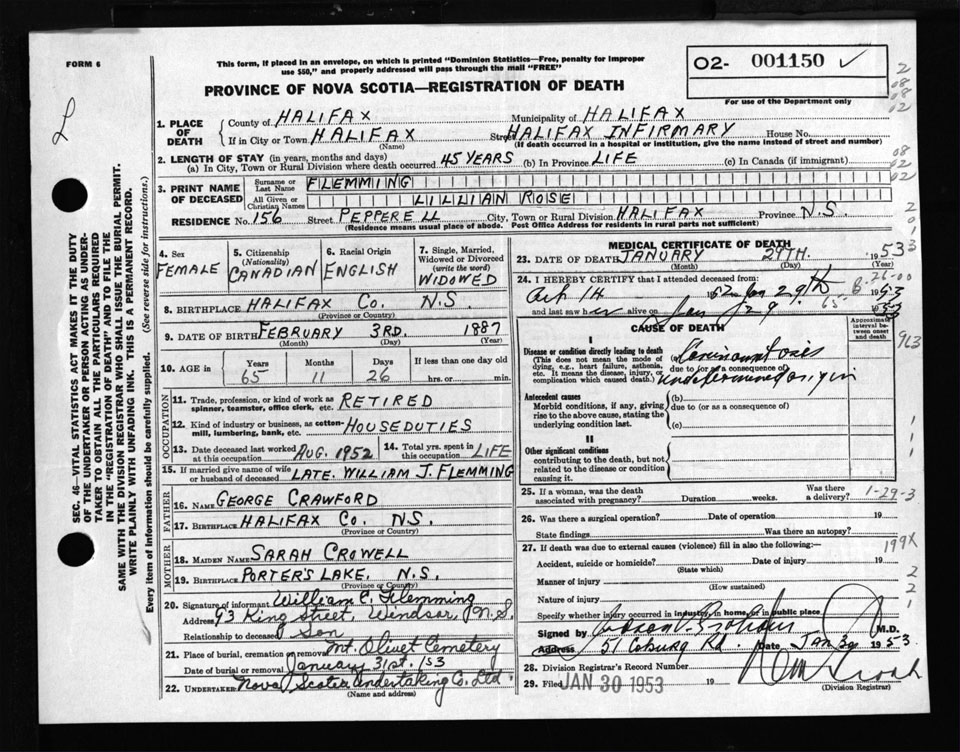 FORM 6
This form, if placed in an envelope, on which is printed "Dominion Statistics—Free, penalty for improper
use $50," and properly addressed will pass through the mail "FREE"
O2- 001150 ✓
PROVINCE OF NOVA SCOTIA—REGISTRATION OF DEATH
For use of the Department only
1. PLACE OF DEATH
County of HALIFAX Municipality of HALIFAX
If in City or Town HALIFAX Street HALIFAX INFIRMARY House No.
(Name) (If death occurred in a hospital or institution, give the name instead of street and number)
2. LENGTH OF STAY (in years, months and days)
(a) In City, Town or Rural Division where death occurred 45 YEARS (b) In Province LIFE (c) In Canada (if immigrant)
3. PRINT NAME OF DECEASED
Surname or Last Name FLEMMING
All Given or Christian Names LILLIAN ROSE
RESIDENCE No. 156 Street PEPPERELL City, Town or Rural Division HALIFAX Province N.S.
(Residence means usual place of abode. Post Office Address for residents in rural parts not sufficient)
4. Sex FEMALE
5. Citizenship (Nationality) CANADIAN
6. Racial Origin ENGLISH
7. Single, Married, Widowed or Divorced (write the word) WIDOWED
8. BIRTHPLACE HALIFAX Co. N.S.
(Province or Country)
9. DATE OF BIRTH FEBRUARY 3RD. 1887
(Month) (Day) (Year)
10. AGE in Years 65 Months 11 Days 26 If less than one day old hrs. or min.
OCCUPATION
11. Trade, profession or kind of work as spinner, teamster, office clerk, etc. RETIRED
12. Kind of industry or business, as cotton-mill, lumbering, bank, etc. HOUSEDUTIES
13. Date deceased last worked at this occupation AUG. 1952
14. Total yrs. spent in this occupation LIFE
15. If married give name of wife or husband of deceased LATE. WILLIAM J. FLEMMING
FATHER
16. Name GEORGE CRAWFORD
17. Birthplace HALIFAX Co. N.S.
(Province or Country)
MOTHER
18. MAIDEN NAME SARAH CROWELL
19. BIRTHPLACE PORTER'S LAKE, N.S.
(Province or Country)
20. Signature of informant William C. Flemming
Address 93 King Street, Windsor, N.S.
Relationship to deceased Son
21. Place of burial, cremation or removal Mt. Olivet Cemetery
Date of burial or removal January 31st. 153
22. UNDERTAKER Nova Scotia Undertaking Co. Ltd.
(Name and address)
MEDICAL CERTIFICATE OF DEATH
23. DATE OF DEATH JANUARY 29TH. 1953
(Month) (Day) (Year)
24. I HEREBY CERTIFY that I attended deceased from:
1952 Jan 29th 1953
and last saw her alive on Jan 29 1953
CAUSE OF DEATH
Approximate interval between onset and death
I
Disease or condition directly leading to death
(This does not mean the mode of dying, e.g., heart failure, asthenia, etc. It means the disease, injury, or complication which caused death.)
(a)
due to (or as a consequence of)
undetermined origin
Antecedent causes
Morbid conditions, if any, giving rise to the above cause, stating the underlying condition last.
(b)
due to (or as a consequence of)
(c)
II
Other significant conditions
contributing to the death, but not related to the disease or condition causing it.
25. If a woman, was the death associated with pregnancy? Duration weeks. Was there a delivery? 1-29-3
26. Was there a surgical operation? Date of operation 19
State findings Was there an autopsy?
27. If death was due to external causes (violence) fill in also the following:
Accident, suicide or homicide? Date of injury 19
(State which)
Manner of injury
(How sustained)
Nature of injury
Specify whether injury occurred in industry, in home, or in public place
Signed by M.D.
Address 51 Coburg Rd. Date Jan 30 1953
28. Division Registrar's Record Number
29. Filed JAN 30 1953 19
(Division Registrar)
SEC. 46—VITAL STATISTICS ACT MAKES IT THE DUTY
OF THE UNDERTAKER OR PERSON ACTING AS UNDER-
TAKER TO OBTAIN ALL THE PARTICULARS REQUIRED
IN THE "REGISTRATION OF DEATH" AND TO FILE THE
SAME WITH THE DIVISION REGISTRAR WHO SHALL ISSUE THE BURIAL PERMIT.
WRITE PLAINLY WITH UNFADING INK. THIS IS A PERMANENT RECORD.
Every item of information should be carefully supplied. (See reverse side for instructions.)